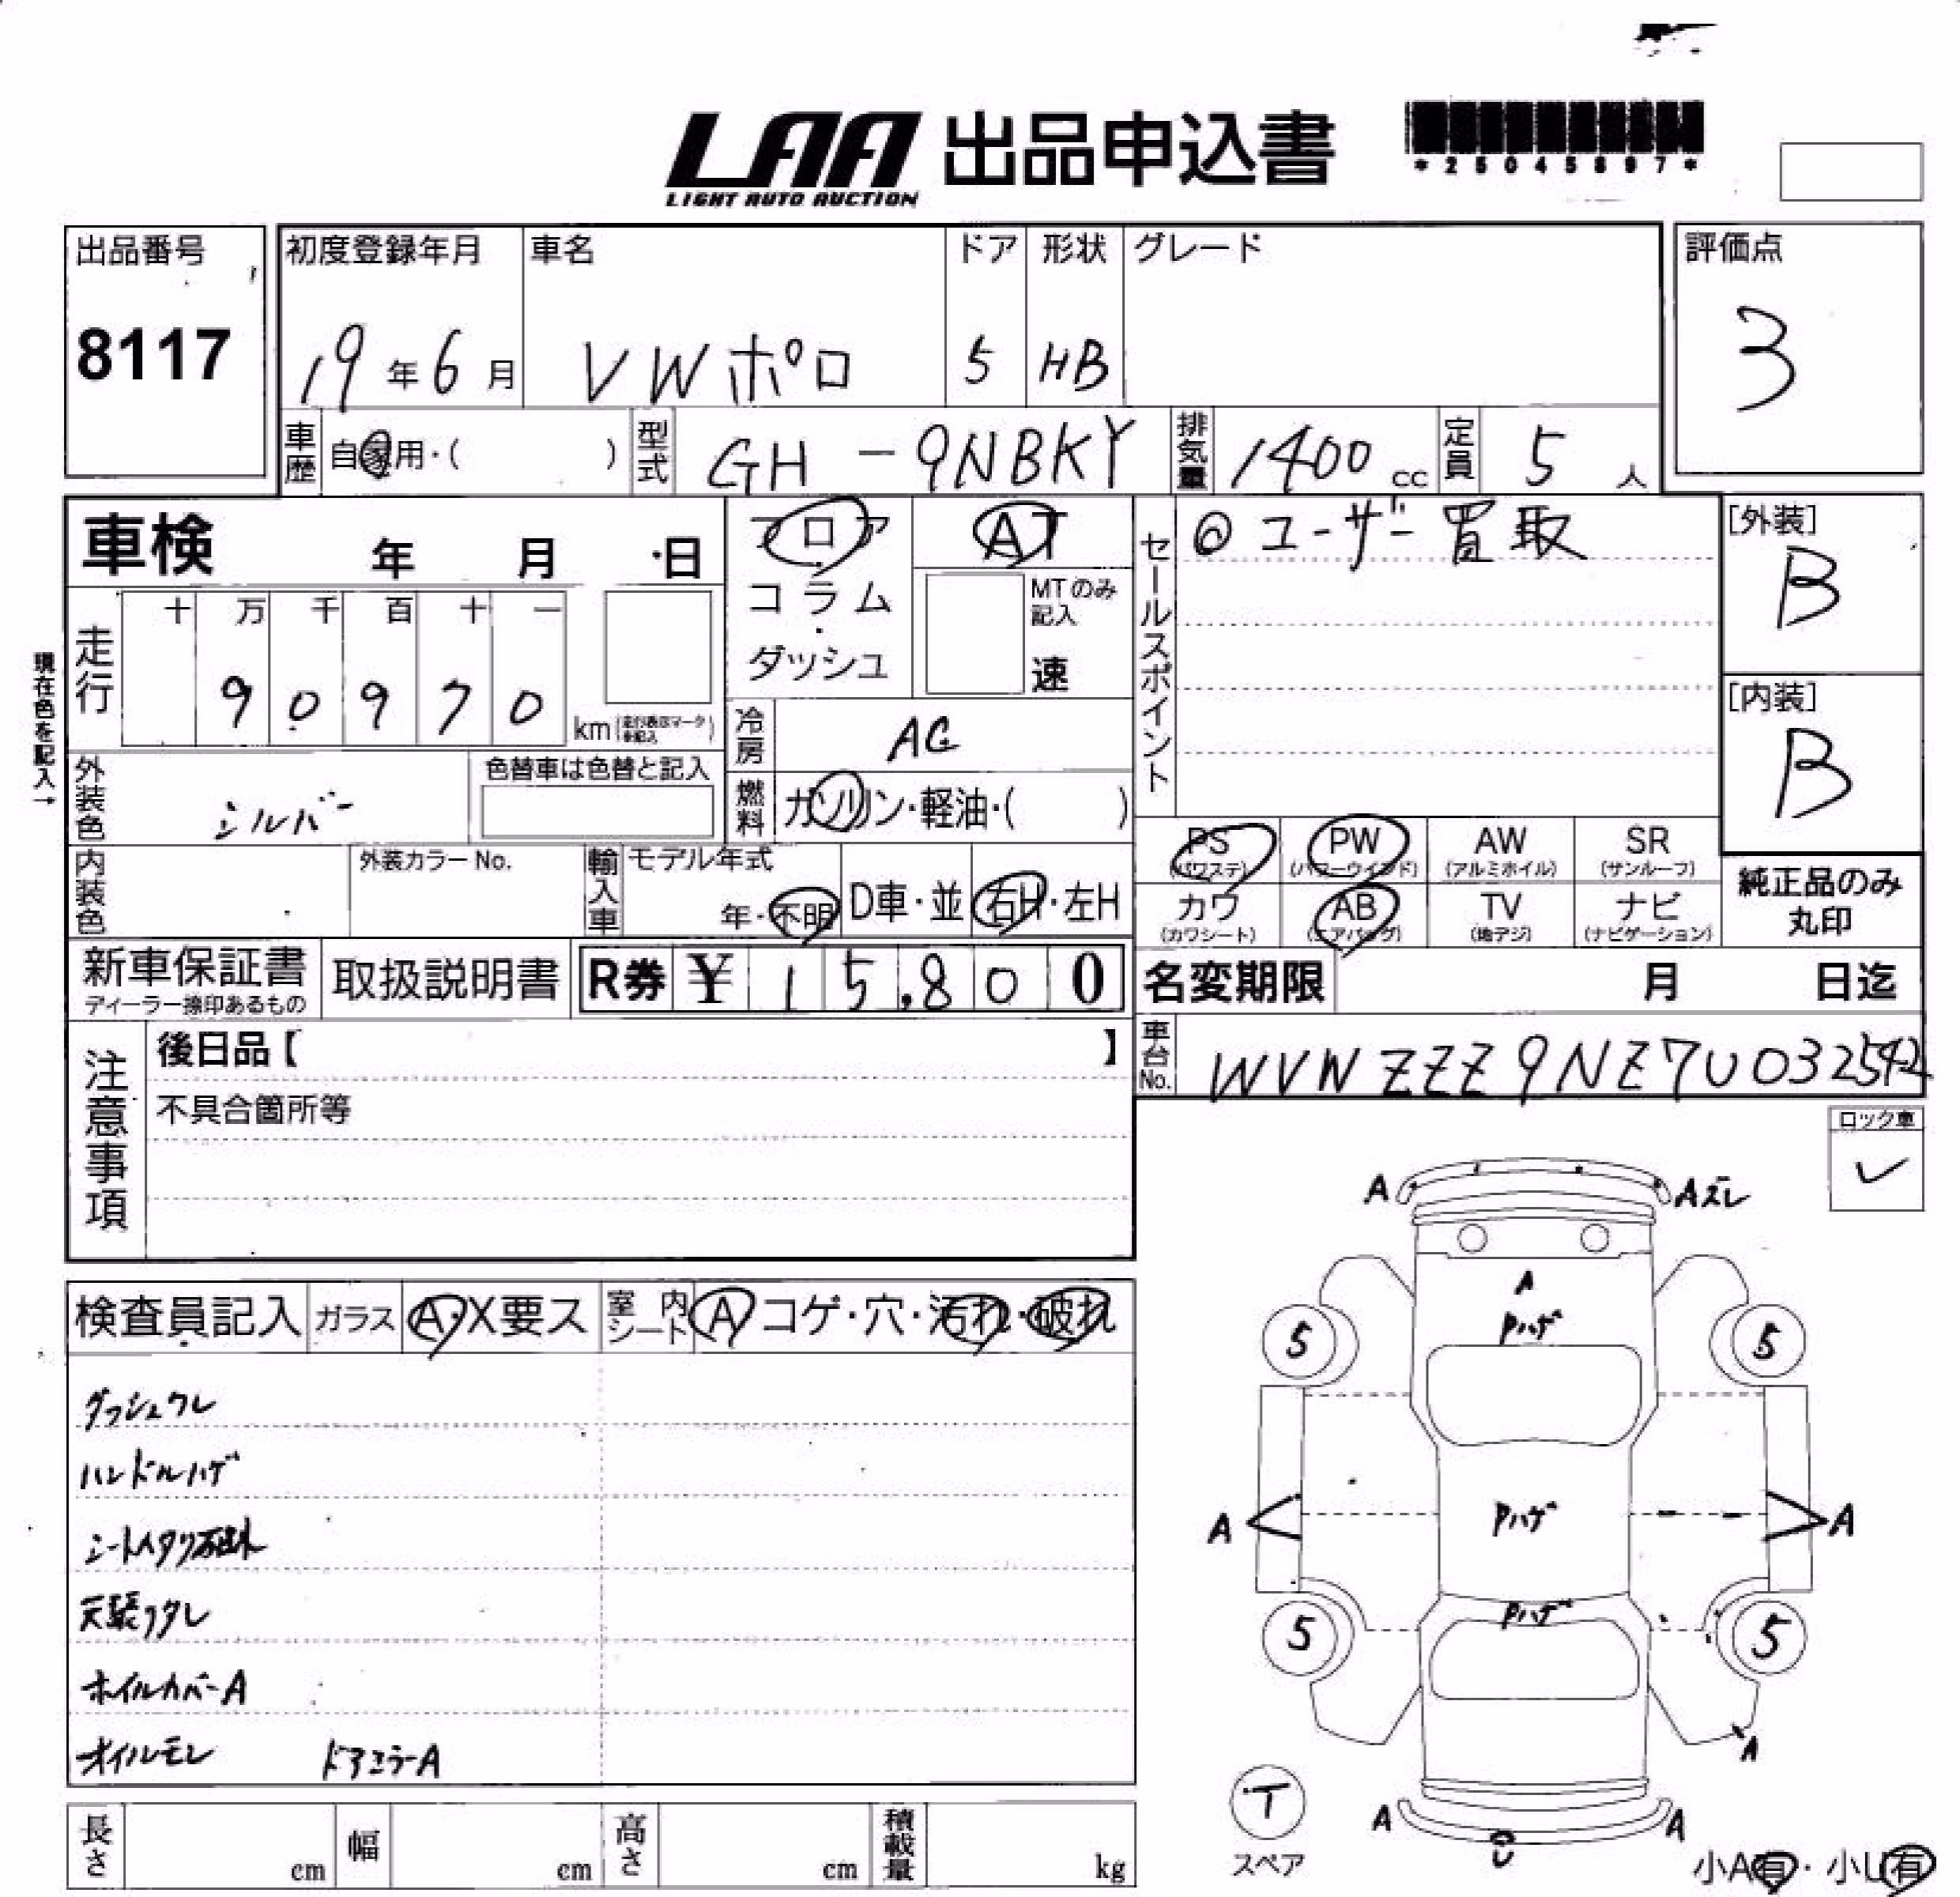 LAA 出品申込書
LIGHT AUTO AUCTION
*25045897*
出品番号
8117
初度登録年月
19年6月
車名
VWポロ
ドア
5
形状
HB
グレード
評価点
3
車歴 自家用・( )
型式 GH-9NBKY
排気量 1400 cc
定員 5 人
車検 年 月 日
フロア
コラム
ダッシュ
AT
MTのみ
記入
速
セールスポイント
◎ユーザー買取
[外装]
B
[内装]
B
現在色を記入→
走行
十 万 千 百 十 一
9 0 9 7 0 km
冷房 AC
外装色 シルバー
色替車は色替と記入
燃料 ガソリン・軽油・( )
PS
(パワステ)
PW
(パワーウインド)
AW
(アルミホイル)
SR
(サンルーフ)
カワ
(カワシート)
AB
(エアバッグ)
TV
(地デジ)
ナビ
(ナビゲーション)
純正品のみ
丸印
内装色
外装カラーNo.
輸入車
モデル年式
年・不明
D車・並
右H・左H
新車保証書
ディーラー捺印あるもの
取扱説明書
R券 ¥ 1 5,8 0 0
名変期限 月 日迄
車台No. WVWZZZ9NZ7U032542
注意事項
後日品【 】
不具合箇所等
ロック車
✓
検査員記入 ガラス A・X要ス 室内シート A コゲ・穴・汚れ・破れ
ダッシュワレ
ハンドルハゲ
シートヘタリ破れ
天張りタレ
ホイルカバーA
オイルモレ ドアミラーA
A
Aズレ
A
Pハゲ
5
5
A
Pハゲ
A
Pハゲ
5
5
A
T
スペア
A
A
小A有・小U有
長さ cm 幅 cm 高さ cm 積載量 kg